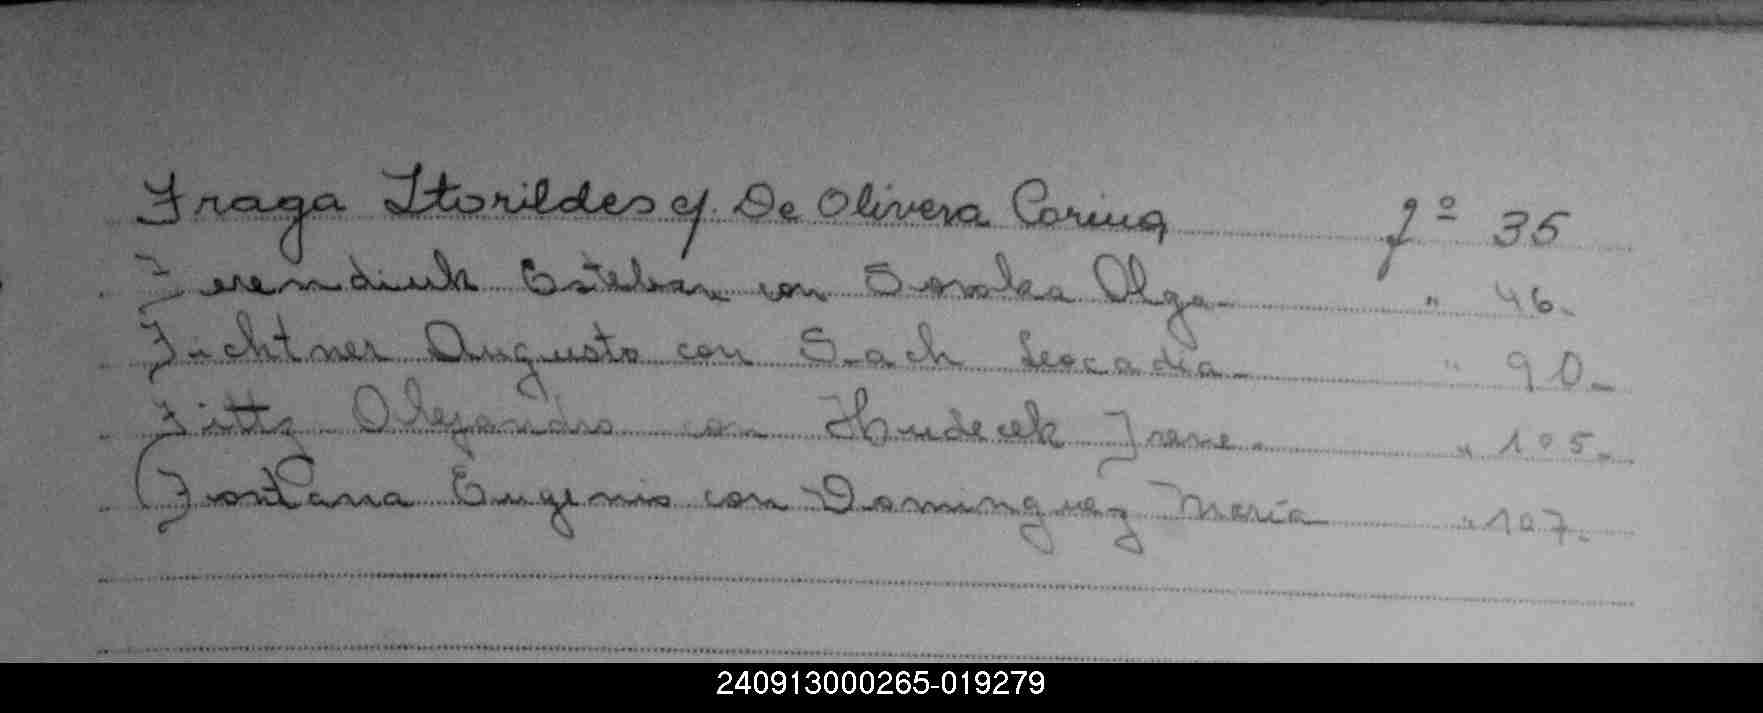 Fraga Itorildes c/. De Olivera Corina fº 35
Ferendiuk Esteban con Soroka Olga " 46.
Fichtner Augusto con Sach Leocadia " 90.
Fittz Alejandro con Hudecek Irene. " 105.
Fontana Eugenio con Dominguez María " 107.
240913000265-019279